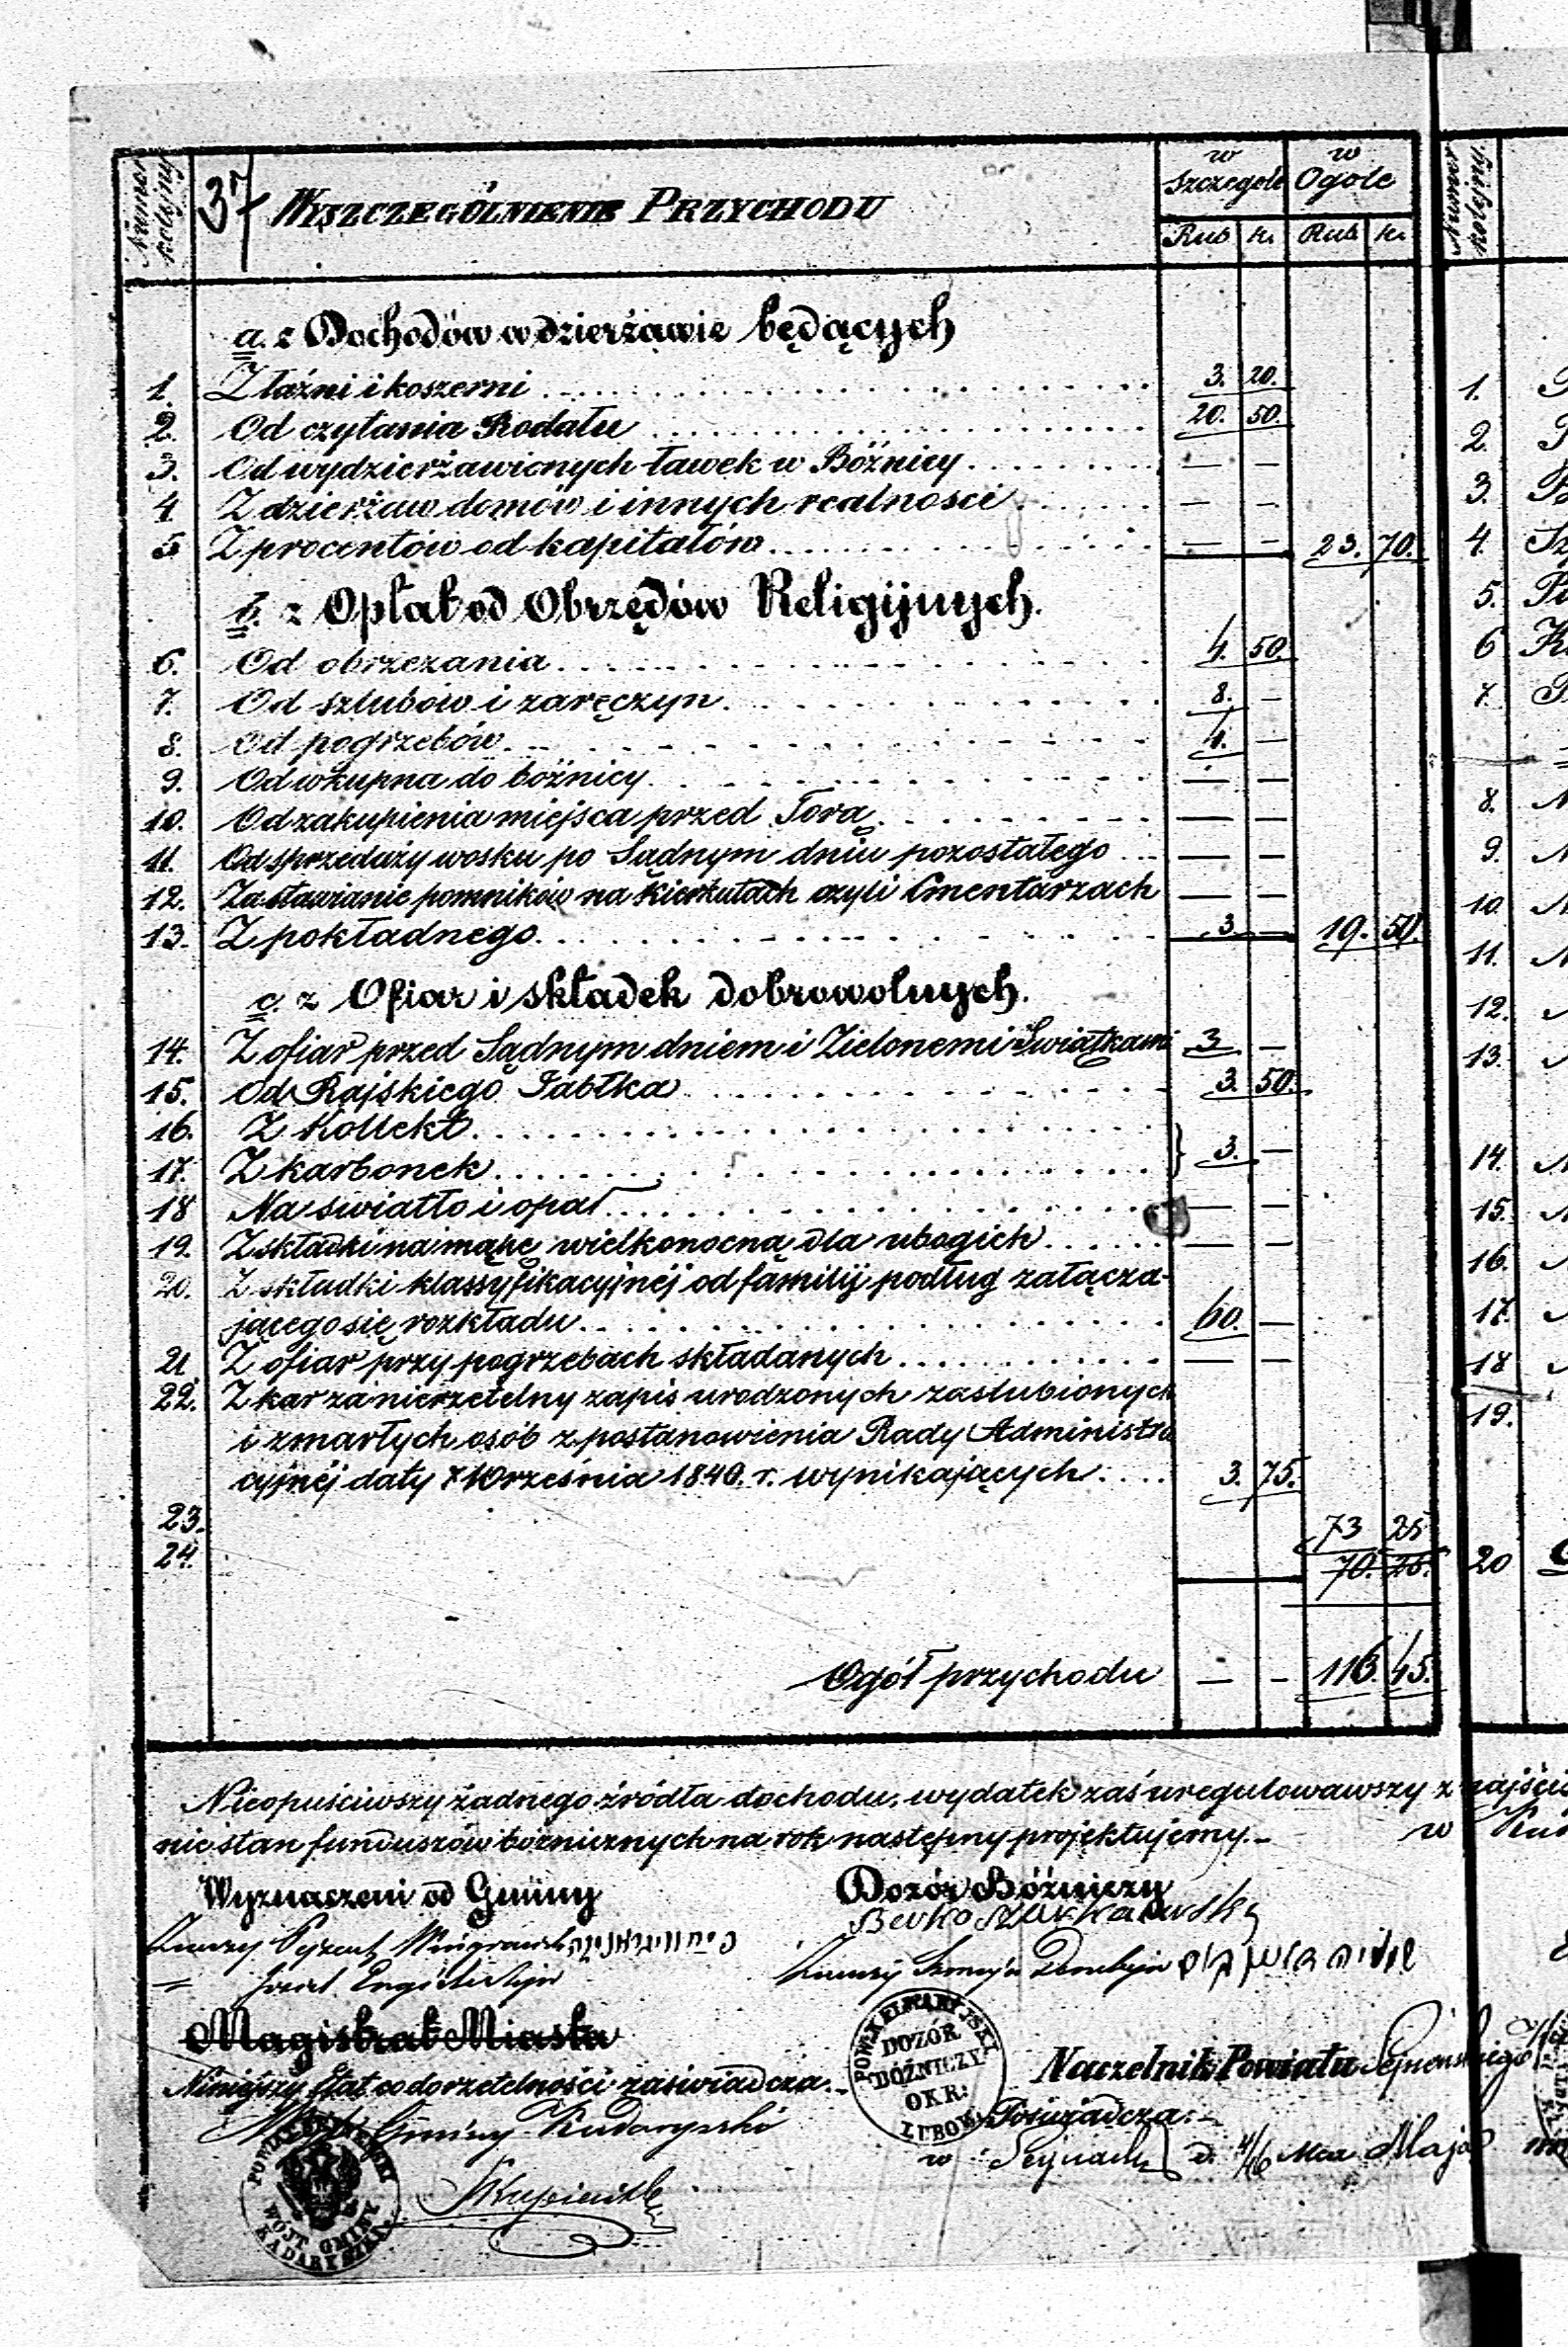 Numer kolejny
37
WYSZCZEGÓLNIENIE PRZYCHODU
w Szczególe
w Ogole
Rub k. Rub k.
a. z Dochodów w dzierżawie będących
1. Z łaźni i koszerni 3. 20.
2. Od czytania Rodału 20. 50.
3. Od wydzierżawionych ławek w Bóżnicy — —
4. Z dzierżaw domów i innych realności — —
5. Z procentów od kapitałów — — 23. 70.
b. z Opłat od Obrzędów Religijnych.
6. Od obrzezania 4. 50.
7. Od szlubów i zaręczyn 8. —
8. Od pogrzebów 4. —
9. Od wkupna do bóżnicy — —
10. Od zakupienia miejsca przed Torą — —
11. Od sprzedaży wosku po Sądnym dniu pozostałego — —
12. Za stawianie pomników na Kierkutach czyli Cmentarzach — —
13. Z pokładnego 3. — 19. 50.
c. z Ofiar i składek dobrowolnych.
14. Z ofiar przed Sądnym dniem i Zielonemi Swiątkami 3 —
15. Od Rajskiego Jabłka 3. 50.
16. Z Kollekt
17. Z karbonek } 3. —
18 Na swiatło i opał — —
19. Z składki na mąkę wielkonocną dla ubogich — —
20. Z składki klassyfikacyjnéj od familij podług załącza-
jącego się rozkładu 60. —
21. Z ofiar przy pogrzebach składanych — —
22. Z kar za nierzetelny zapis urodzonych zaslubionych
i zmarłych osób z postanowienia Rady Administra
cyjnéj daty 7 Września 1840. r. wynikających 3. 75.
23. 73 25
24. 70. 25.
Ogół przychodu — — 116. 45.
Nieopuściwszy żadnego źródła dochodu, wydatek zaś uregulowawszy z najści
nie stan funduszów bóżnicznych na rok następny projektujemy.— w
Wyznaczeni od Gminy
Dozór Bóżniczy
Magistrat Miasta
Niniejszy Etat co do rzetelności zaświadcza.—
Naczelnik Powiatu Sejnenskiego
Poświadcza:—
Wójt Gminy Kadaryszki
w Sejnach d. 4/16 Mca Maja
DOZÓR BÓŻNICZY OKR: LUBOW
WÓJT GMINY KADARYSZKI